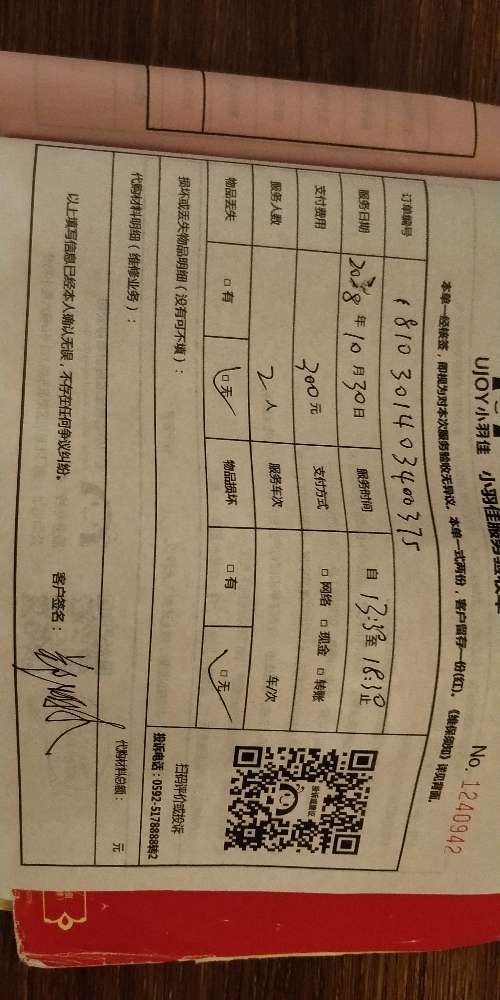 UJOY小羽佳 小羽佳服务验收单
No. 1240942
本单一经核签,即视为对本次服务验收无异议。本单一式两份,客户留存一份(红)。《维保须知》详见背面。
订单编号 1810301403400375
服务日期 2018年10月30日 服务时间 自 13:30至 18:30止
支付费用 300元 支付方式 □网络 □现金 □转账
服务人数 2人 服务车次 车/次
物品丢失 □有 □无 物品损坏 □有 □无
损坏或丢失物品明细(没有可不填):
投诉或建议
扫码评价或投诉
投诉电话:0592-5178888转2
代购材料明细(维修业务):
代购材料总额: 元
以上填写信息已经本人确认无误,不存在任何争议纠纷。
客户签名: